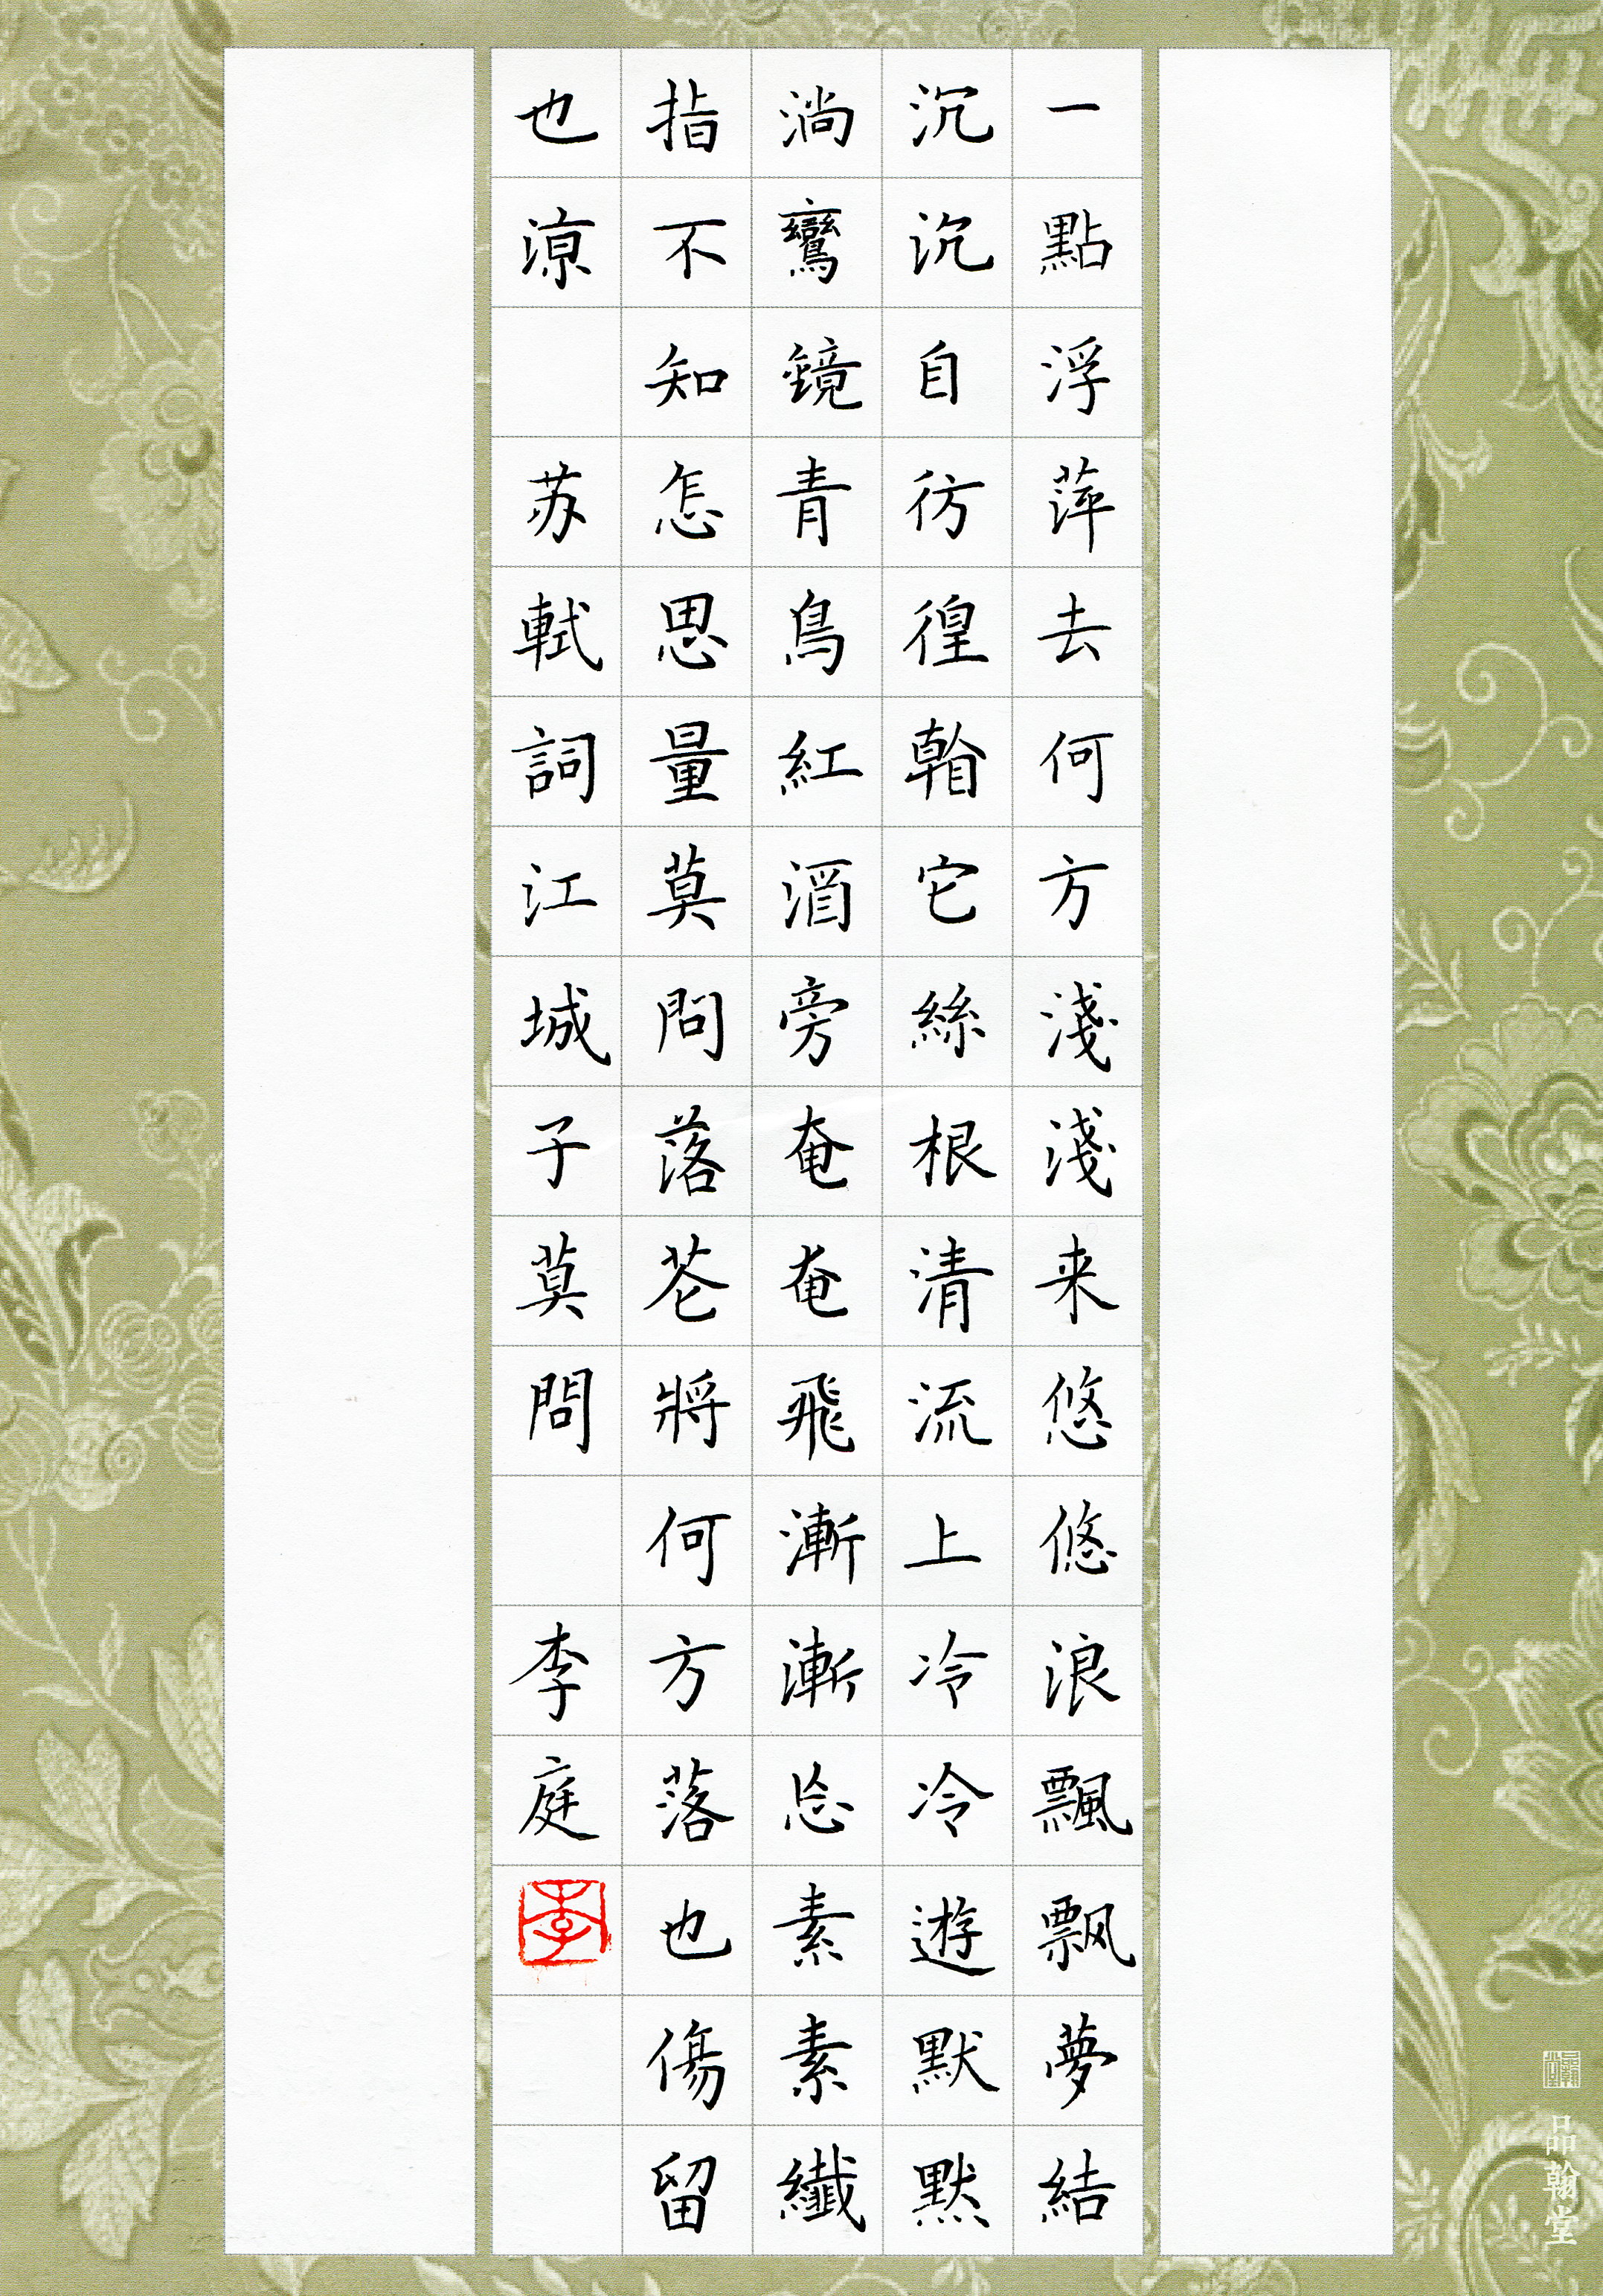 一點浮萍去何方淺淺来悠悠浪飄飘夢結
沉沉自彷徨它絲根清流上冷冷遊默黙
淌鸞鏡青鳥紅旁奄奄飛漸漸素素纖
指不知怎思量莫問落芲將何方落也傷留
也涼 苏軾詞江城子莫問 李庭
李
品翰堂